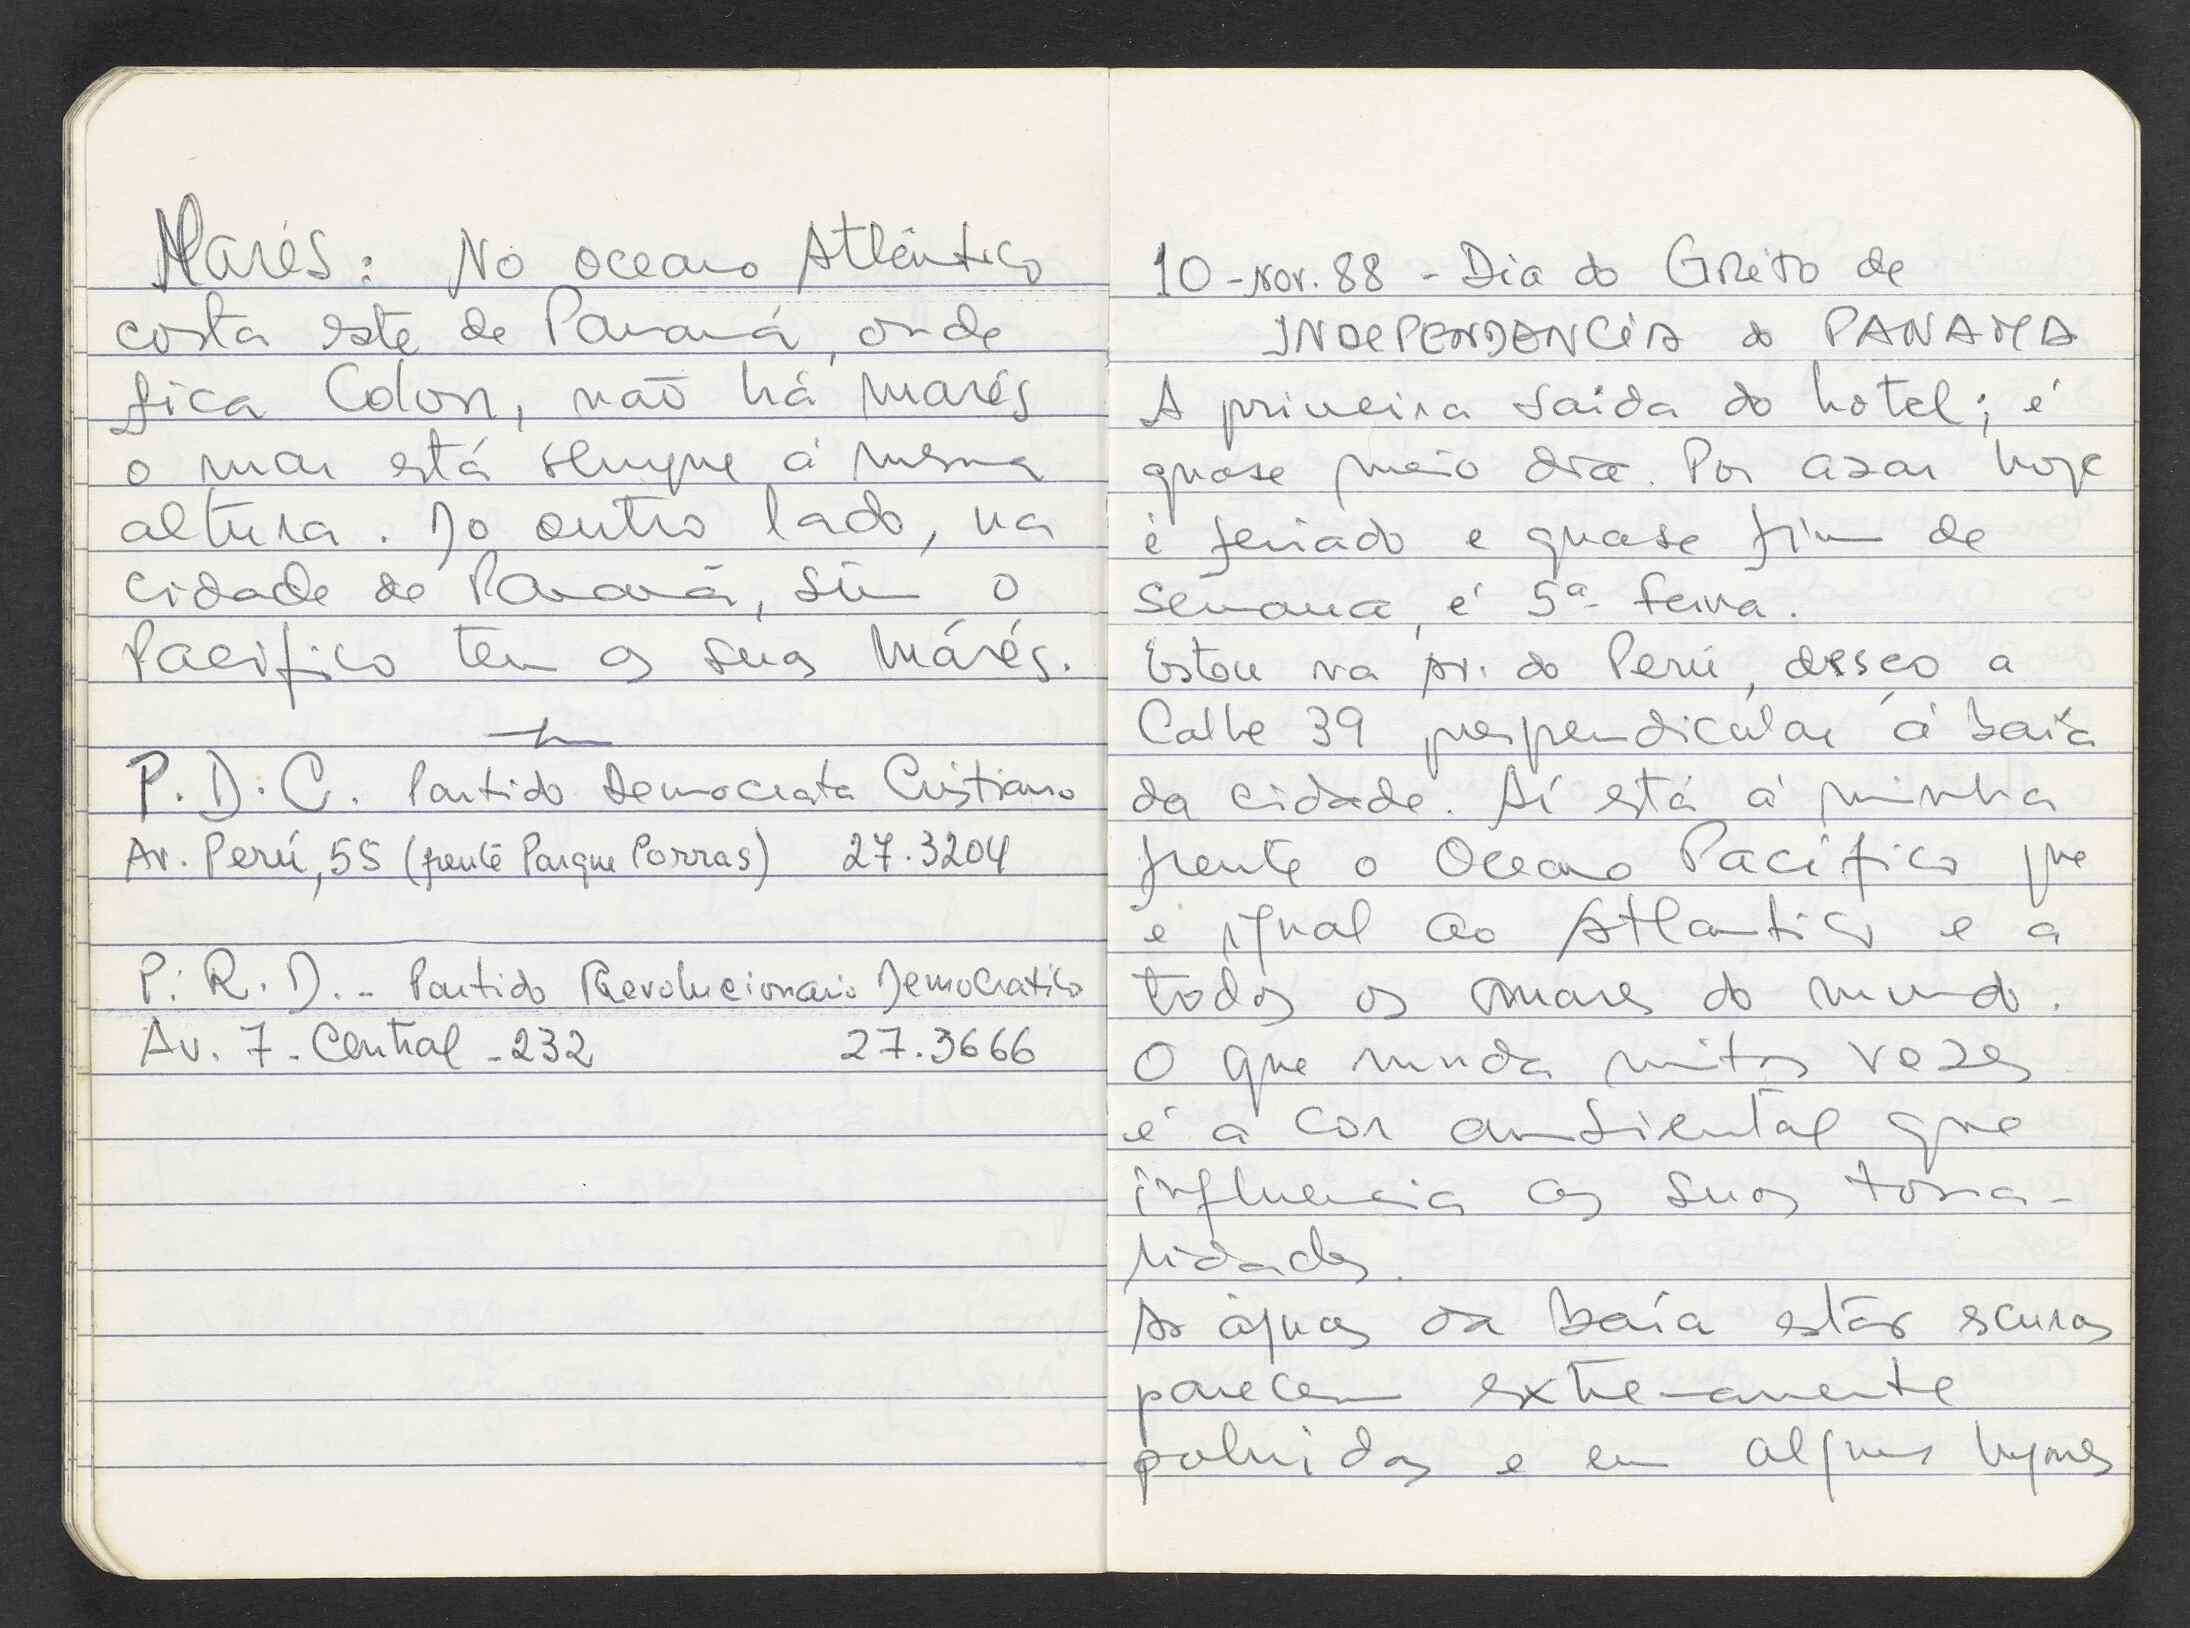 Marés: No oceano Atlântico
costa este de Panamá, onde
fica Colon, não há marés
o mar está sempre à mesma
altura. Do outro lado, na
cidade de Panamá, sim o
Pacífico tem as suas márés.
P.D.C. Partido Democrata Cristiano
Av. Perú, 55 (frente Parque Porras) 27.3204
P.R.D.- Partido Revolucionario Democratico
Av. 7 - Central - 232 27.3666
10-Nov. 88 - Dia do Grito de
INDEPENDENCIA do PANAMA
A primeira saida do hotel; é
quase meio dia. Por azar hoje
é feriado e quase fim de
semana, é 5ª- feira.
Estou na Av. do Perú, desço a
Calle 39 perpendicular á baía
da cidade. Aí está à minha
frente o Oceano Pacífico que
é igual ao Atlantico e a
todos os mares do mundo.
O que muda muitas vezes
é a cor ambiental que
influencia as suas tona-
lidades.
As águas da baía estão escuras
parecem extremamente
poluidas e em alguns lugares